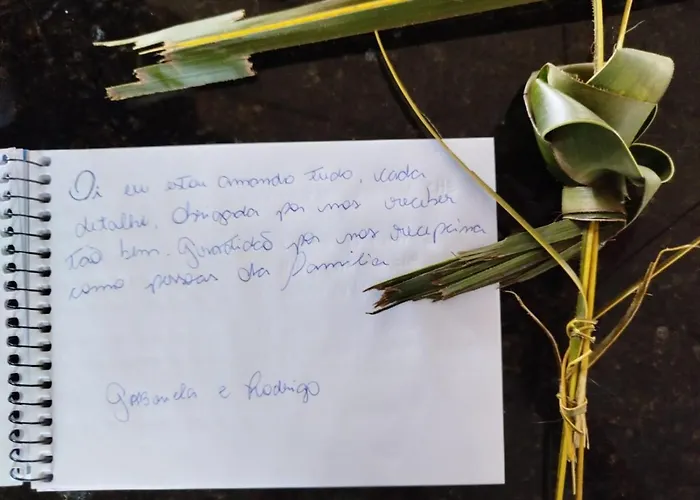 Oi eu estou amando tudo, cada
detalhe. Obrigada por nos receber
tão bem. Gratidão por nos
como pessoas da família
e Rodrigo